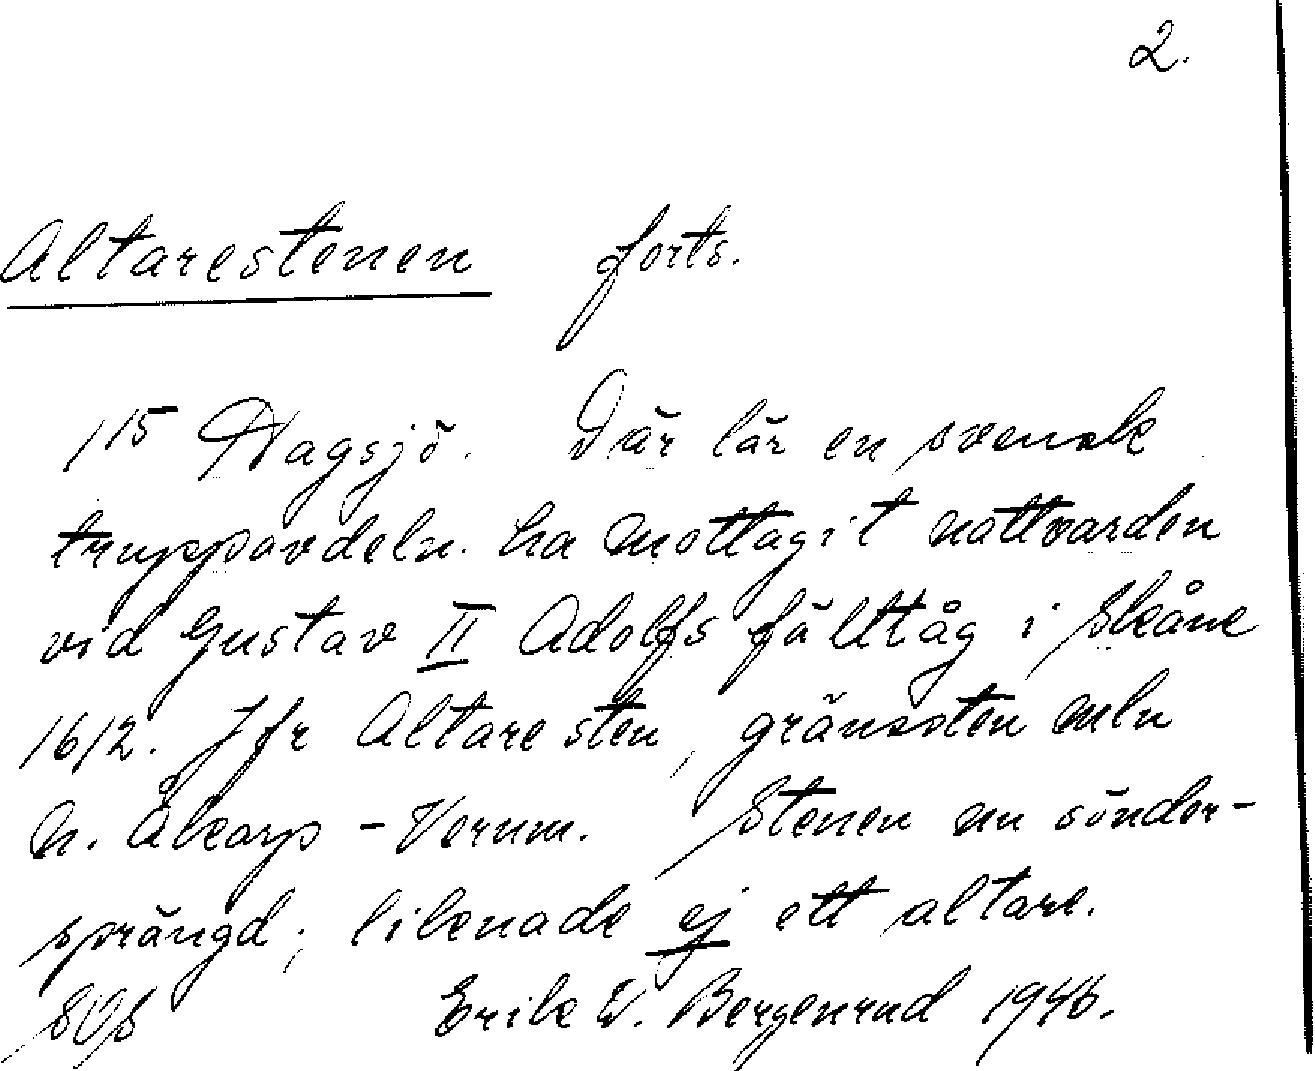 2.
Altarestenen forts.
1/15 Hagsjö. Där lär en svensk
truppavdeln. ha mottagit nattvarden
vid Gustav II Adolfs fälttåg i Skåne
1612. Jfr Altaresten, gränssten mln
N. Åkarp - Verum. Stenen nu sönder-
sprängd; liknade ej ett altare.
Erik W. Bergenrud 1946.